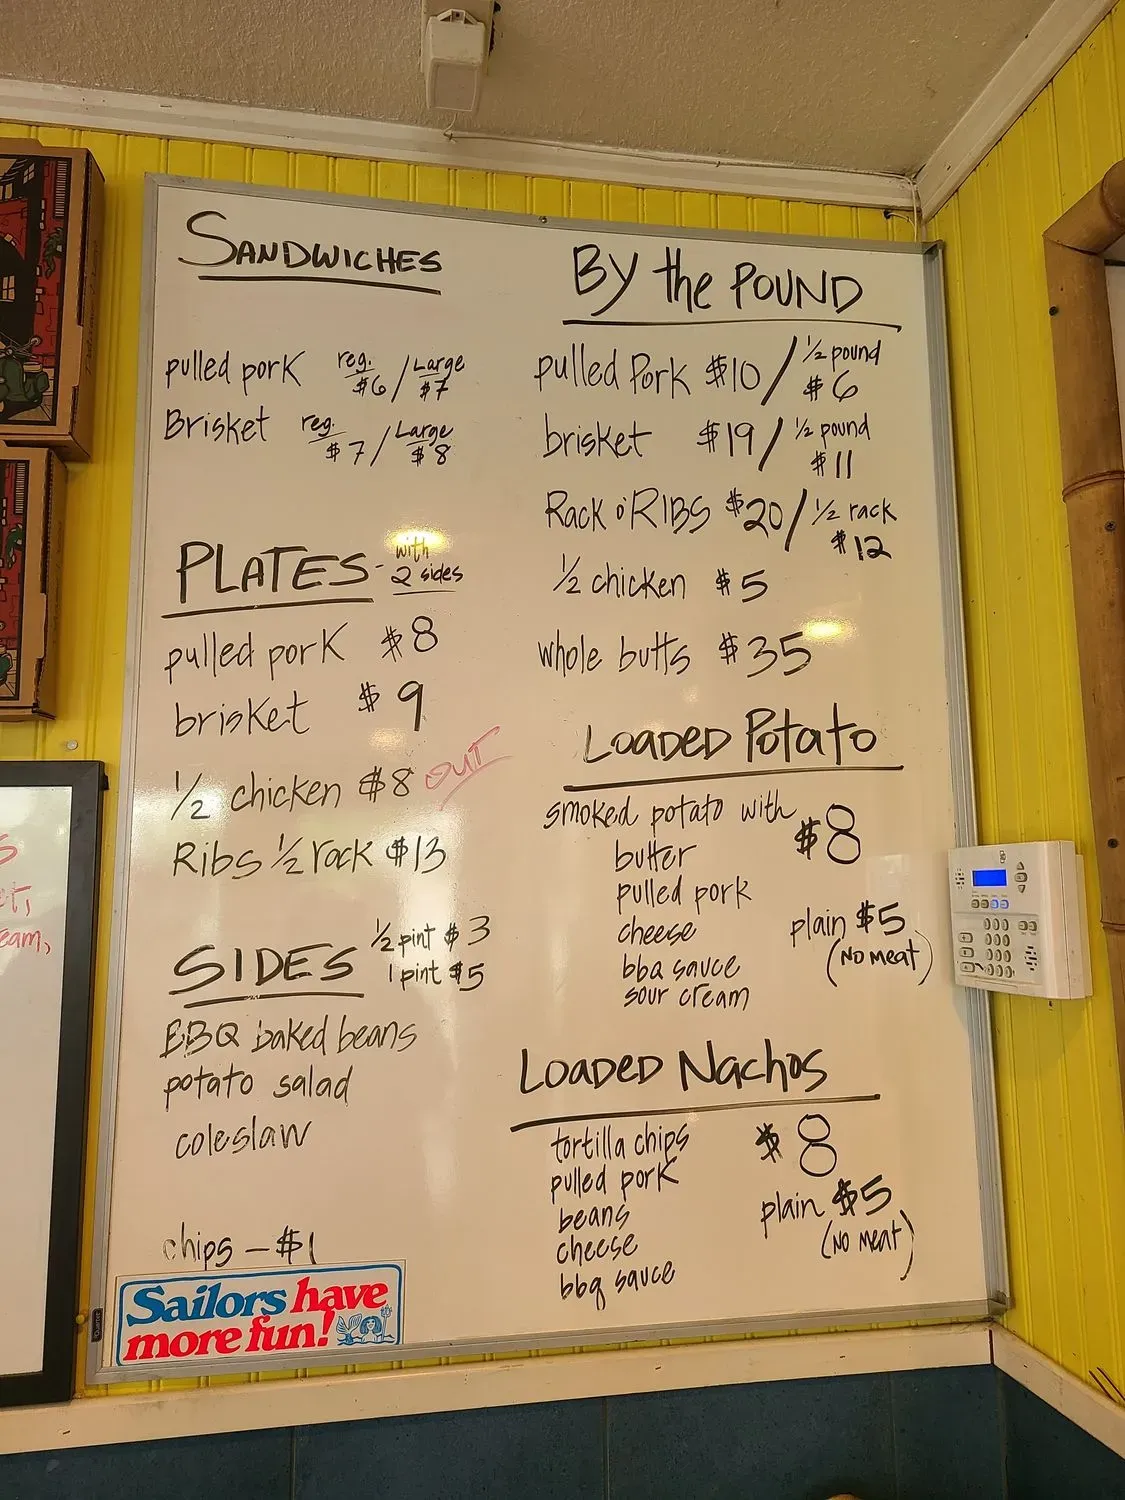 SANDWICHES
pulled pork reg. $6 / Large $7
Brisket reg. $7 / Large $8
PLATES - with 2 sides
pulled pork $8
brisket $9
1/2 chicken $8 OUT
Ribs 1/2 rack $13
SIDES 1/2 pint $3
1 pint $5
BBQ baked beans
potato salad
coleslaw
chips - $1
Sailors have
more fun!
BY the POUND
pulled Pork $10 / 1/2 pound $6
brisket $19 / 1/2 pound $11
Rack o' RIBS $20 / 1/2 rack $12
1/2 chicken $5
whole butts $35
LOADED Potato
smoked potato with $8
butter
pulled pork
cheese plain $5
bbq sauce (NO MEAT)
sour cream
LOADED Nachos
tortilla chips $8
pulled pork
beans plain $5
cheese (NO MEAT)
bbq sauce